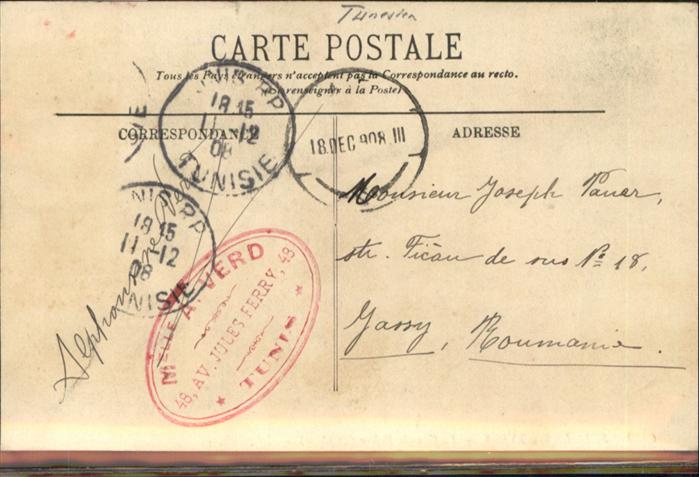 Tunesien
CARTE POSTALE
Tous les Pays étrangers n'acceptent pas la Correspondance au recto.
(Se renseigner à la Poste)
CORRESPONDANCE
ADRESSE
TUNIS RP
18 15
11-12
08
TUNISIE
18.DEC 908.III
NIS RP
18 15
11-12
08
NISIE
SIE
Monsieur Joseph
str. de sus No 18.
Jassy, Roumanie.
Melle A. VERD
48, AV. JULES FERRY, 48
TUNIS